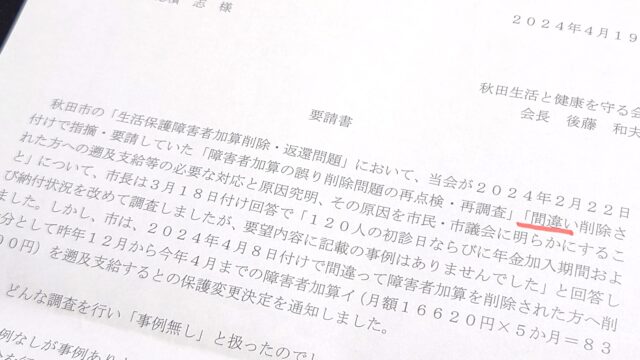 志 様
２０２４年４月１９
秋田生活と健康を守る会
会長 後藤 和夫
要請書
秋田市の「生活保護障害者加算削除・返還問題」において、当会が２０２４年２月２２日
付けで指摘・要請していた「障害者加算の誤り削除問題の再点検・再調査」「間違い削除さ
れた方への遡及支給等の必要な対応と原因究明、その原因を市民・市議会に明らかにするこ
と」について、市長は３月１８日付け回答で「１２０人の初診日ならびに年金加入期間およ
び納付状況を改めて調査しましたが、要望内容に記載の事例はありませんでした」と回答し
ました。しかし、市は、２０２４年４月８日付けで間違って障害者加算を削除された方へ削
分として昨年１２月から今年４月までの障害者加算イ（月額１６６２０円×５か月＝８３
００円）を遡及支給するとの保護変更決定を通知しました。
どんな調査を行い「事例無し」と扱ったのでし
例なしが事例あり